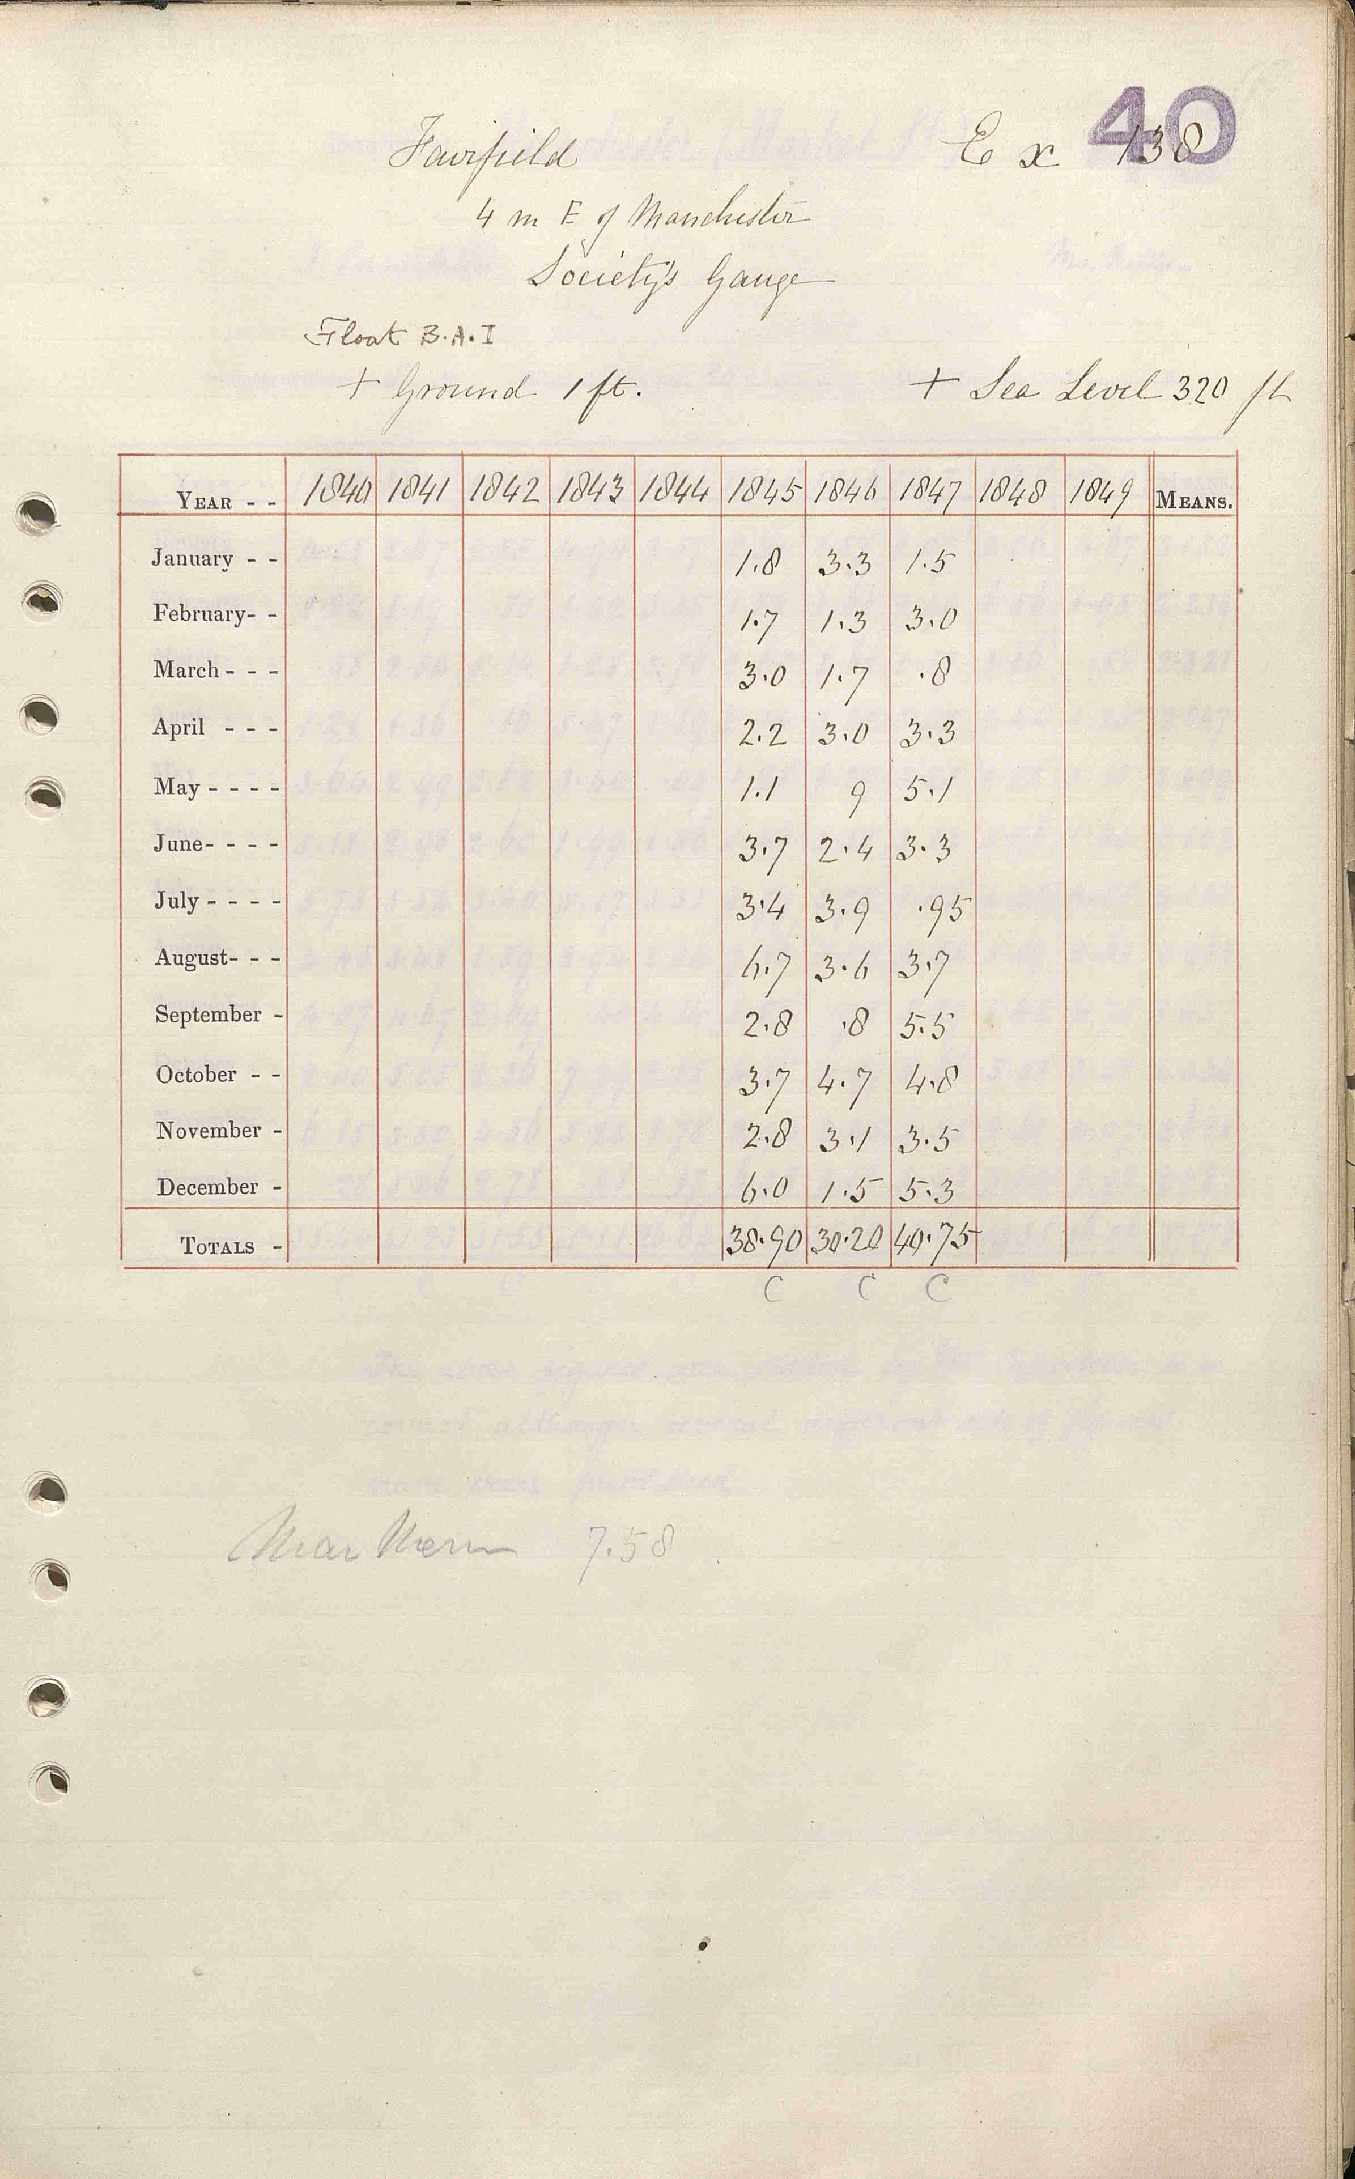 40
Fairfield Ex 138
4 m E of Manchester
Society's Gauge
Float B.A.I
+ Ground 1 ft. + Sea Level 320 ft
YEAR - - 1840 1841 1842 1843 1844 1845 1846 1847 1848 1849 MEANS.
January - - 1.8 3.3 1.5
February- - 1.7 1.3 3.0
March - - - 3.0 1.7 .8
April - - - 2.2 3.0 3.3
May - - - - 1.1 9 5.1
June- - - - 3.7 2.4 3.3
July - - - - 3.4 3.9 .95
August- - - 6.7 3.6 3.7
September - 2.8 .8 5.5
October - - 3.7 4.7 4.8
November - 2.8 3.1 3.5
December - 6.0 1.5 5.3
TOTALS - 38.90 30.20 40.75
C C C
7.58